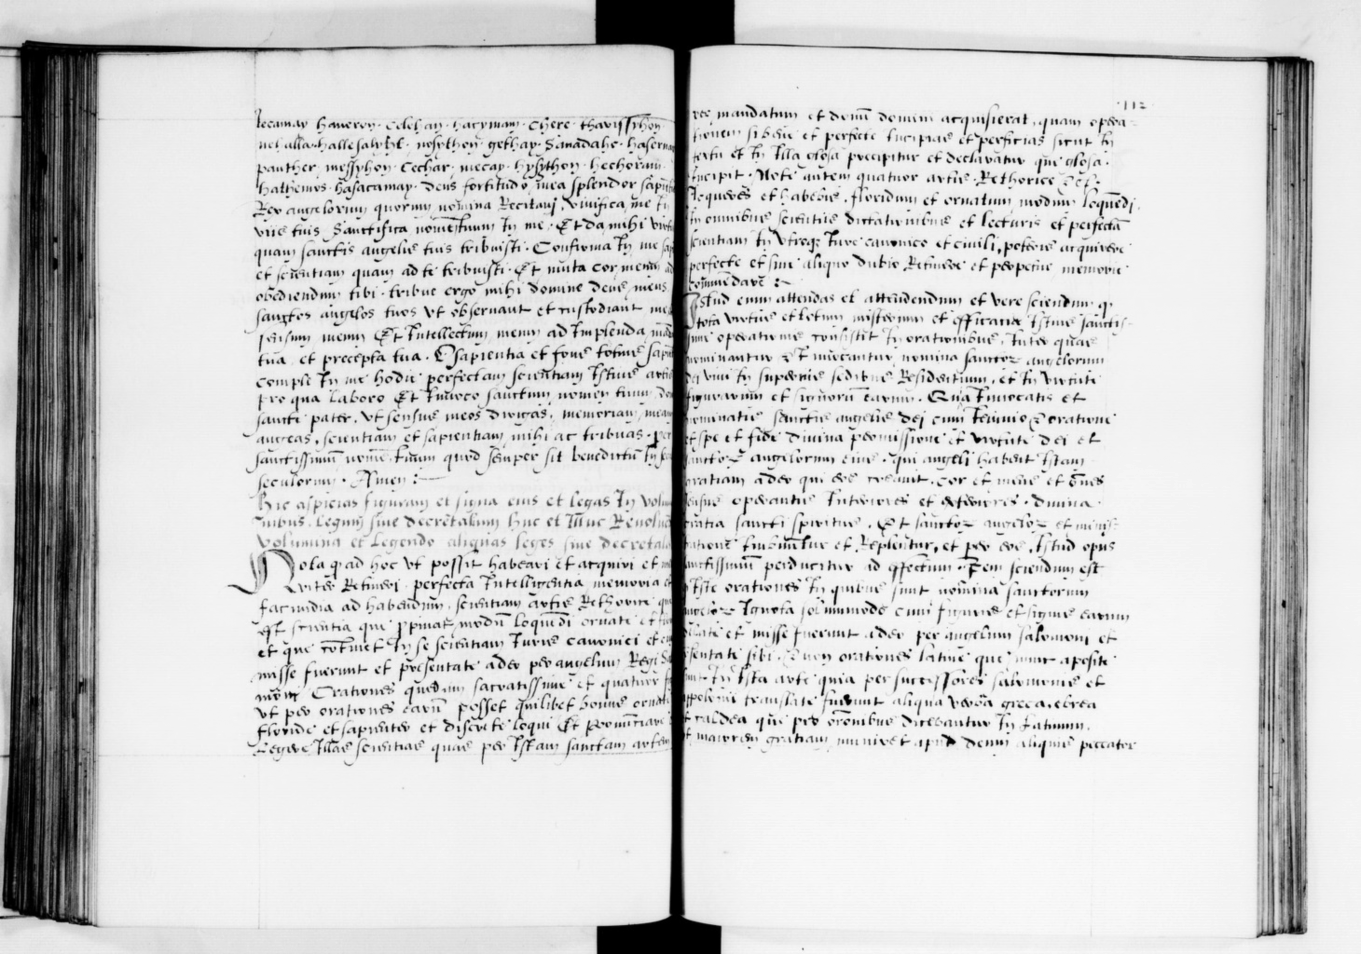 lecamay haweroy · Celehay · hacymam · chere · thavissyhon
nel alla · hallesalyhl · nosythoy · gethay · Sanadahe · hasernay
panther · messyhoy · Cechar · mecay · hysythoy · hechoray
halyemos · hasacamay · Deus fortitudo mea splendor
Rex angelorum quorum nomina Recitavi · vivifica me In
viis tuis Sanctifica In me · Et da mihi
quam sanctis angelis tuis tribuisti · Confirma In me
et scientiam quam ad te tribuisti · Et muta cor meum ad
obediendum tibi · tribue ergo mihi domine deus meus
sanctos angelos tuos vt observant et custodiant me
sensum meum Et Intellectum meum ad Implenda
tua et precepta tua · O sapientia et fons totius
Comple In me hodie perfectam scientiam Istius artis
pro qua laboro Et Invoco sanctum nomen tuum
sancte pater · vt sensus meos dirigas · memoriam meam
augeas · scientiam et sapientiam mihi ac tribuas · per
sanctissimum nome tuum quod semper sit benedictu In
seculorum · Amen :~
hic aspicias figuram et signa eius et legas In
legum sive decretalium huc et Illuc Revolue
volumina et legendo aliquas leges sive decretales
Nota q ad hoc vt possit haberi et acquiri et
Retineri · perfecta Intelligentia memoria et
facundia ad habendum · scientiam artis Rethorice
est scientia que modum loquendi ornate et
et que continet In se scientiam Iuris canonici et
misse fuerunt et presentate a deo per angelum Regi
Orationes quedam sacratissime et quatuor
vt per orationes earum posset quilibet bonus ornate
floride et sapienter et discrete loqui Et Pronunciare
legere Illas scientias quas per Istam sanctam artem
112
mandatum et donum domini acquisierat · quam opera
tionem si bene et perfecte Incipias et perficias sicut In
textu et In Illa glosa precipitur et declaratur que glosa ·
Incipit · Note autem quatuor artis · Rethorice
loqueris et habebis · floridum et ornatum modum loquendi ·
In omnibus scientiis dictationibus et lecturis et perfectam
scientiam In vtroque Iure canonico et civili · poteris acquirere
perfecte et sine aliquo dubio Retinere et perpetue memorie
commendare
Istud enim attendas et attendendum et vere sciendum q
tota virtus et totum misterium et efficacia Istius sanctis-
sime operationis consistit In orationibus · Inter quas
nominantur et Invocantur nomina sanctorum angelorum
dei vivi In supernis sedibus Residentium · et In virtute
figurarum et signorum earum · Qua Invocatis et
nominatis sanctis angelis dei cum Ieiunio et oratione
et spe et fide divina promissione et virtute dei et
sanctorum angelorum eius · qui angeli habent Istam
gratiam a deo qui eos creavit · cor et mens et omnes
sensus operantis Interiores et exteriores · divina
gratia sancti spiritus · Et sanctorum angelorum et
et Replentur · et per eos · Istud opus
sanctissimum perducitur ad effectum · Item sciendum est
q Iste orationes In quibus sunt nomina sanctorum
angelorum Ignota solummodo cum figuris et signis earum
date et misse fuerunt a deo per angelum salomoni et
presentate sibi · et non orationes latine que nunc aposite
sunt In Ista arte quia per successores salomonis et
appolonii translate fuerunt aliqua verba greca · ebrea
et caldea que pro orationibus dicebantur In latinum ·
et maiorem gratiam apud deum aliquis peccator